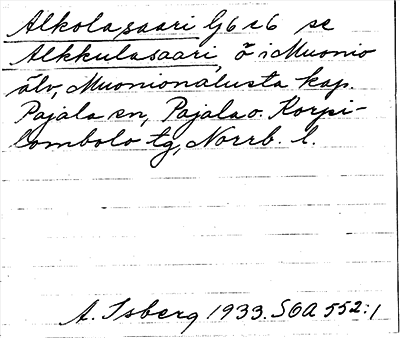 Alkolasaari G6c6 se
Alkkulasaari, ö i Muonio
älv, Muonionalusta kap.
Pajala sn, Pajala o. Korpi-
lombolo tg, Norrb. l.
A. Isberg 1933. SOA 552:1